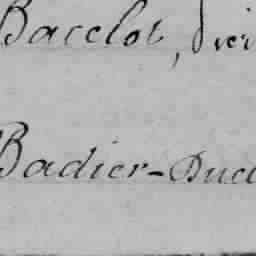 Bacelot,
Badier-Ducl